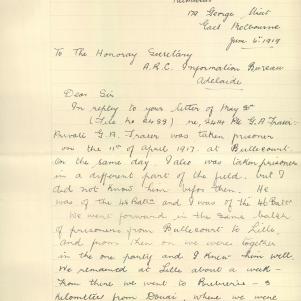 172 George Street
East Melbourne
June 4th 1919
To The Honorary Secretary
A.R.C. Information Bureau
Adelaide
Dear Sir
In reply to your letter of May 8th
(File No 2499) re, 2414 Pte G.A. Fraser.
Private G.A. Fraser was taken prisoner
on the 11th of April 1917. at Bullecourt
On the same day. I also was taken prisoner
in a different part of the field. but I
did not know him before then. He
was of the 48 Battn. and I was of the 46 Battn
We went forward in the same batch
of prisoners from Bullecourt to Lille,
and from then on we were together
in the one party and I knew him well.
We remained at Lille about a week -
From there we went to - 3
kilometers from Douai, where we were